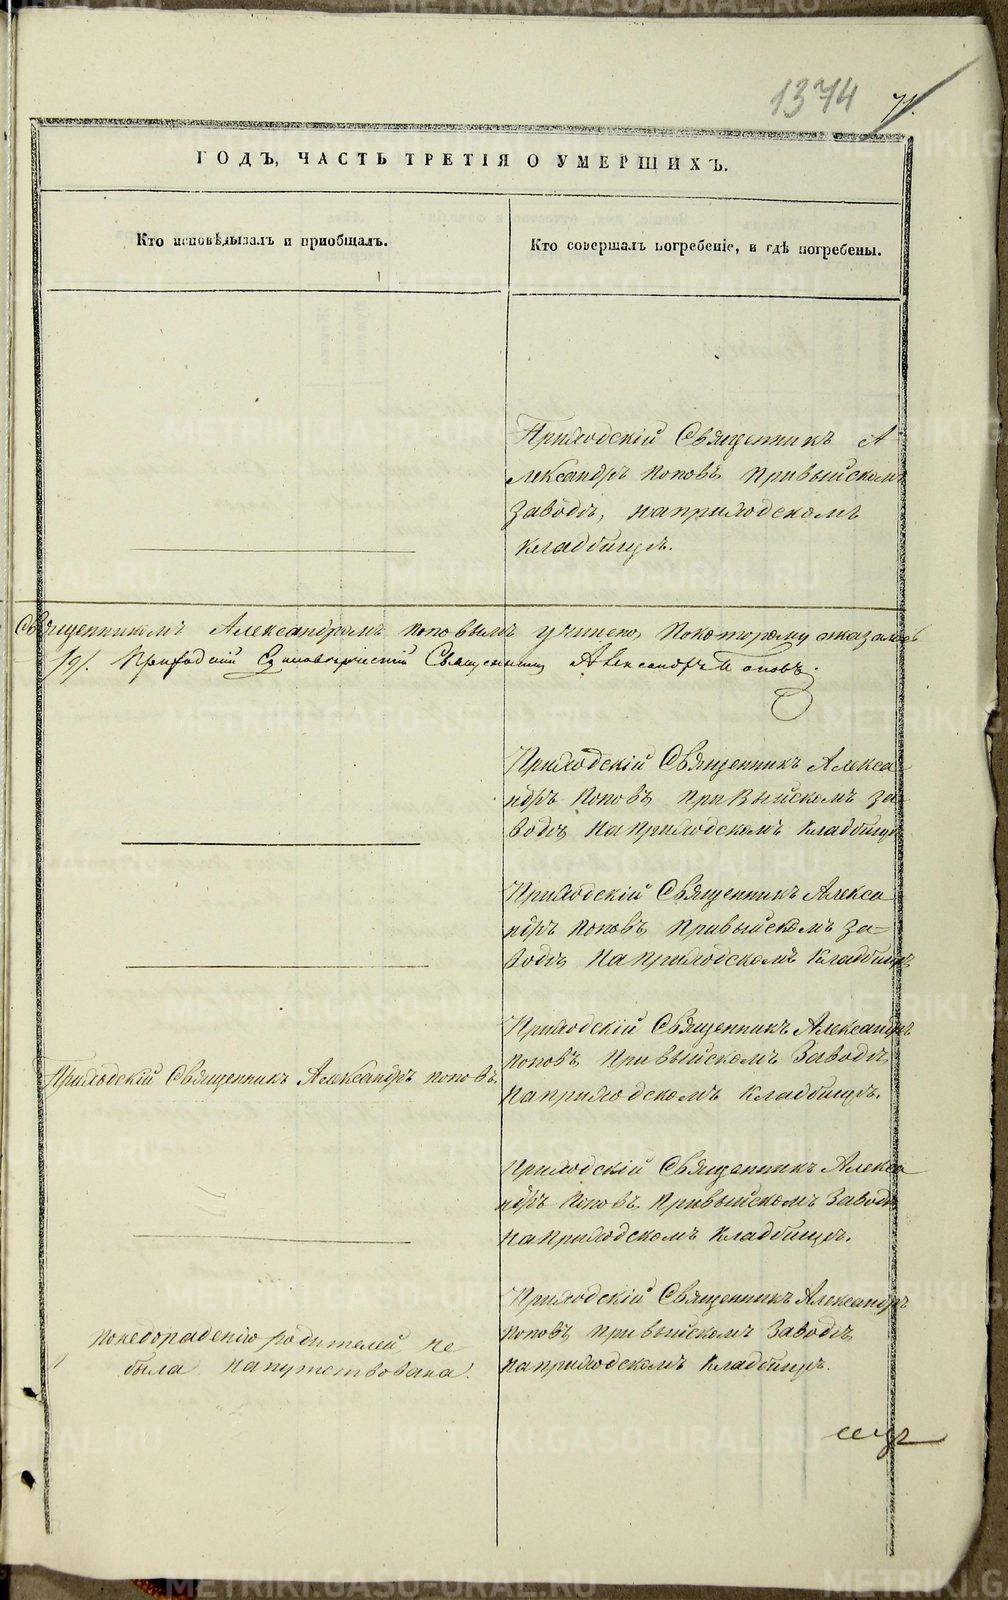 1374 71.
ГОДЪ, ЧАСТЬ ТРЕТІЯ О УМЕРШИХЪ.
Кто исповѣдывалъ и пріобщалъ.
Кто совершалъ погребеніе, и гдѣ погребены.
Приходскій Священникъ А-
лександръ Поповъ, привыйскомъ
заводѣ, наприходскомъ
кладбищѣ.
Священникомъ Александромъ Поповымъ учинено, покоторому оказалось
Приходскій Единовѣрческій Священникъ Александръ Поповъ.
Приходскій Священникъ Алекса
ндръ Поповъ, при Выйскомъ за
водѣ, на приходскомъ кладбищѣ
Приходскій Священникъ Алекса
ндръ Поповъ, привыйскомъ за=
водѣ, на приходскомъ кладбищѣ
Приходскій Священникъ Александръ Поповъ.
Приходскій Священникъ Александръ
Поповъ, при выйскомъ заводѣ,
наприходскомъ кладбищѣ.
Приходскій Священникъ Алекса
ндръ Поповъ, привыйскомъ заводѣ
наприходскомъ кладбищѣ.
понедораденію родителей, не
была напутствована.
Приходскій Священникъ Александръ
Поповъ, при выйскомъ заводѣ,
наприходскомъ кладбищѣ.
METRIKI.GASO-URAL.RU